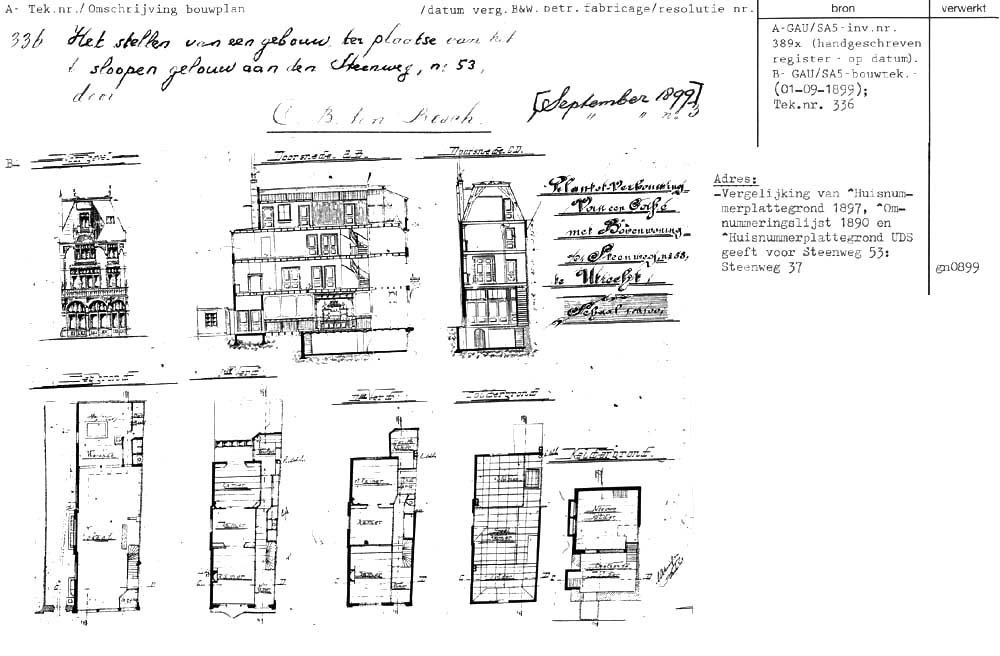 A- Tek.nr./Omschrijving bouwplan /datum verg.B&W.betr.fabricage/resolutie nr. bron verwerkt
336 Het stellen van een gebouw, ter plaatse van het
te sloopen gebouw aan den Steenweg, no 53,
door
C. B. ten Bosch.
[September 1899]
" " n: 3
A-GAU/SA5-inv.nr.
389x (handgeschreven
register - op datum).
B- GAU/SA5-bouwtek.-
(01-09-1899);
Tek.nr. 336
B-
Voorgevel
Doorsnede A.B.
Doorsnede C.D.
Plan tot Verbouwing
van een Café
met Bovenwoning
Steenweg, no 53,
te Utrecht,
Schaal
Adres:
-Vergelijking van ^Huisnum-
merplattegrond 1897, ^Om-
nummeringslijst 1890 en
^Huisnummerplattegrond UDS
geeft voor Steenweg 53:
Steenweg 37
gn0899
Zoldergrond
Keldergrond.
Kamer
Kamer
Kamer
Kamer
Kamer
Kamer
Nieuwe
Kelder